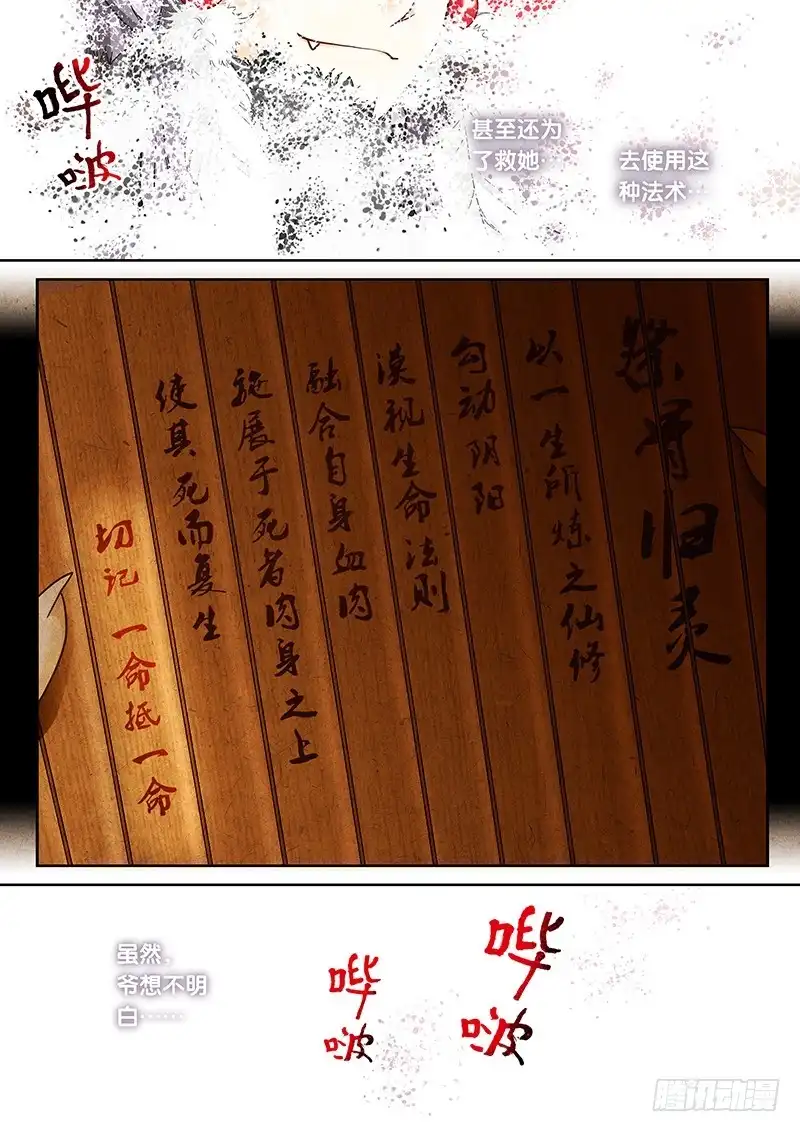 哔
啵
甚至还为
了救她…
去使用这
种法术…
祭骨归灵
以一生所炼之仙修
勾动阴阳
漠视生命法则
融合自身血肉
施展于死者肉身之上
使其死而复生
切记一命抵一命
虽然，
爷想不明
白……
哔
啵
哔
啵
腾讯动漫